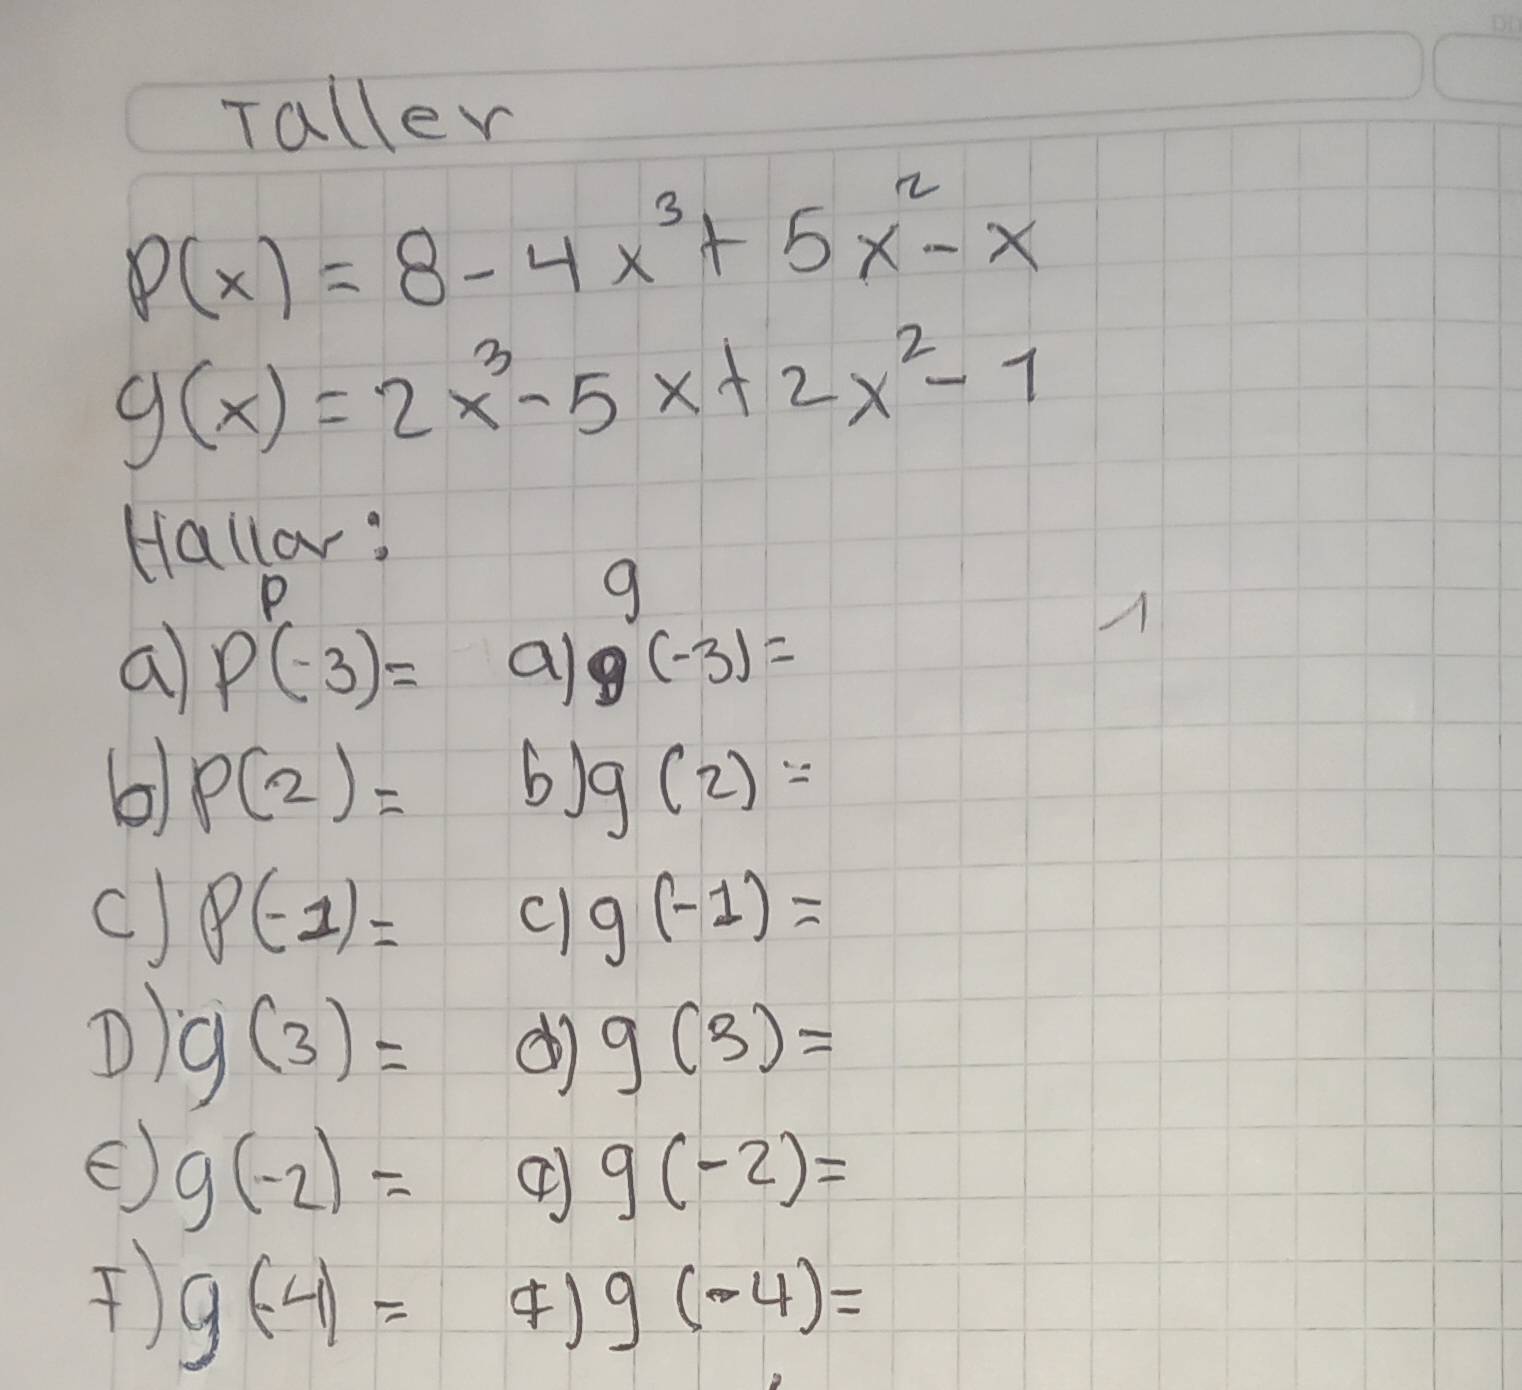 Taller
P(x) = 8 - 4x³ + 5x² - x
g(x) = 2x³ - 5x + 2x² - 1
Hallar:
P g
a) P(-3) = a) g(-3) =
1
b) P(2) = b) g(2) =
c) P(-1) = c) g(-1) =
D) g(3) = d) g(3) =
E) g(-2) = e) g(-2) =
F) g(-4) = f) g(-4) =